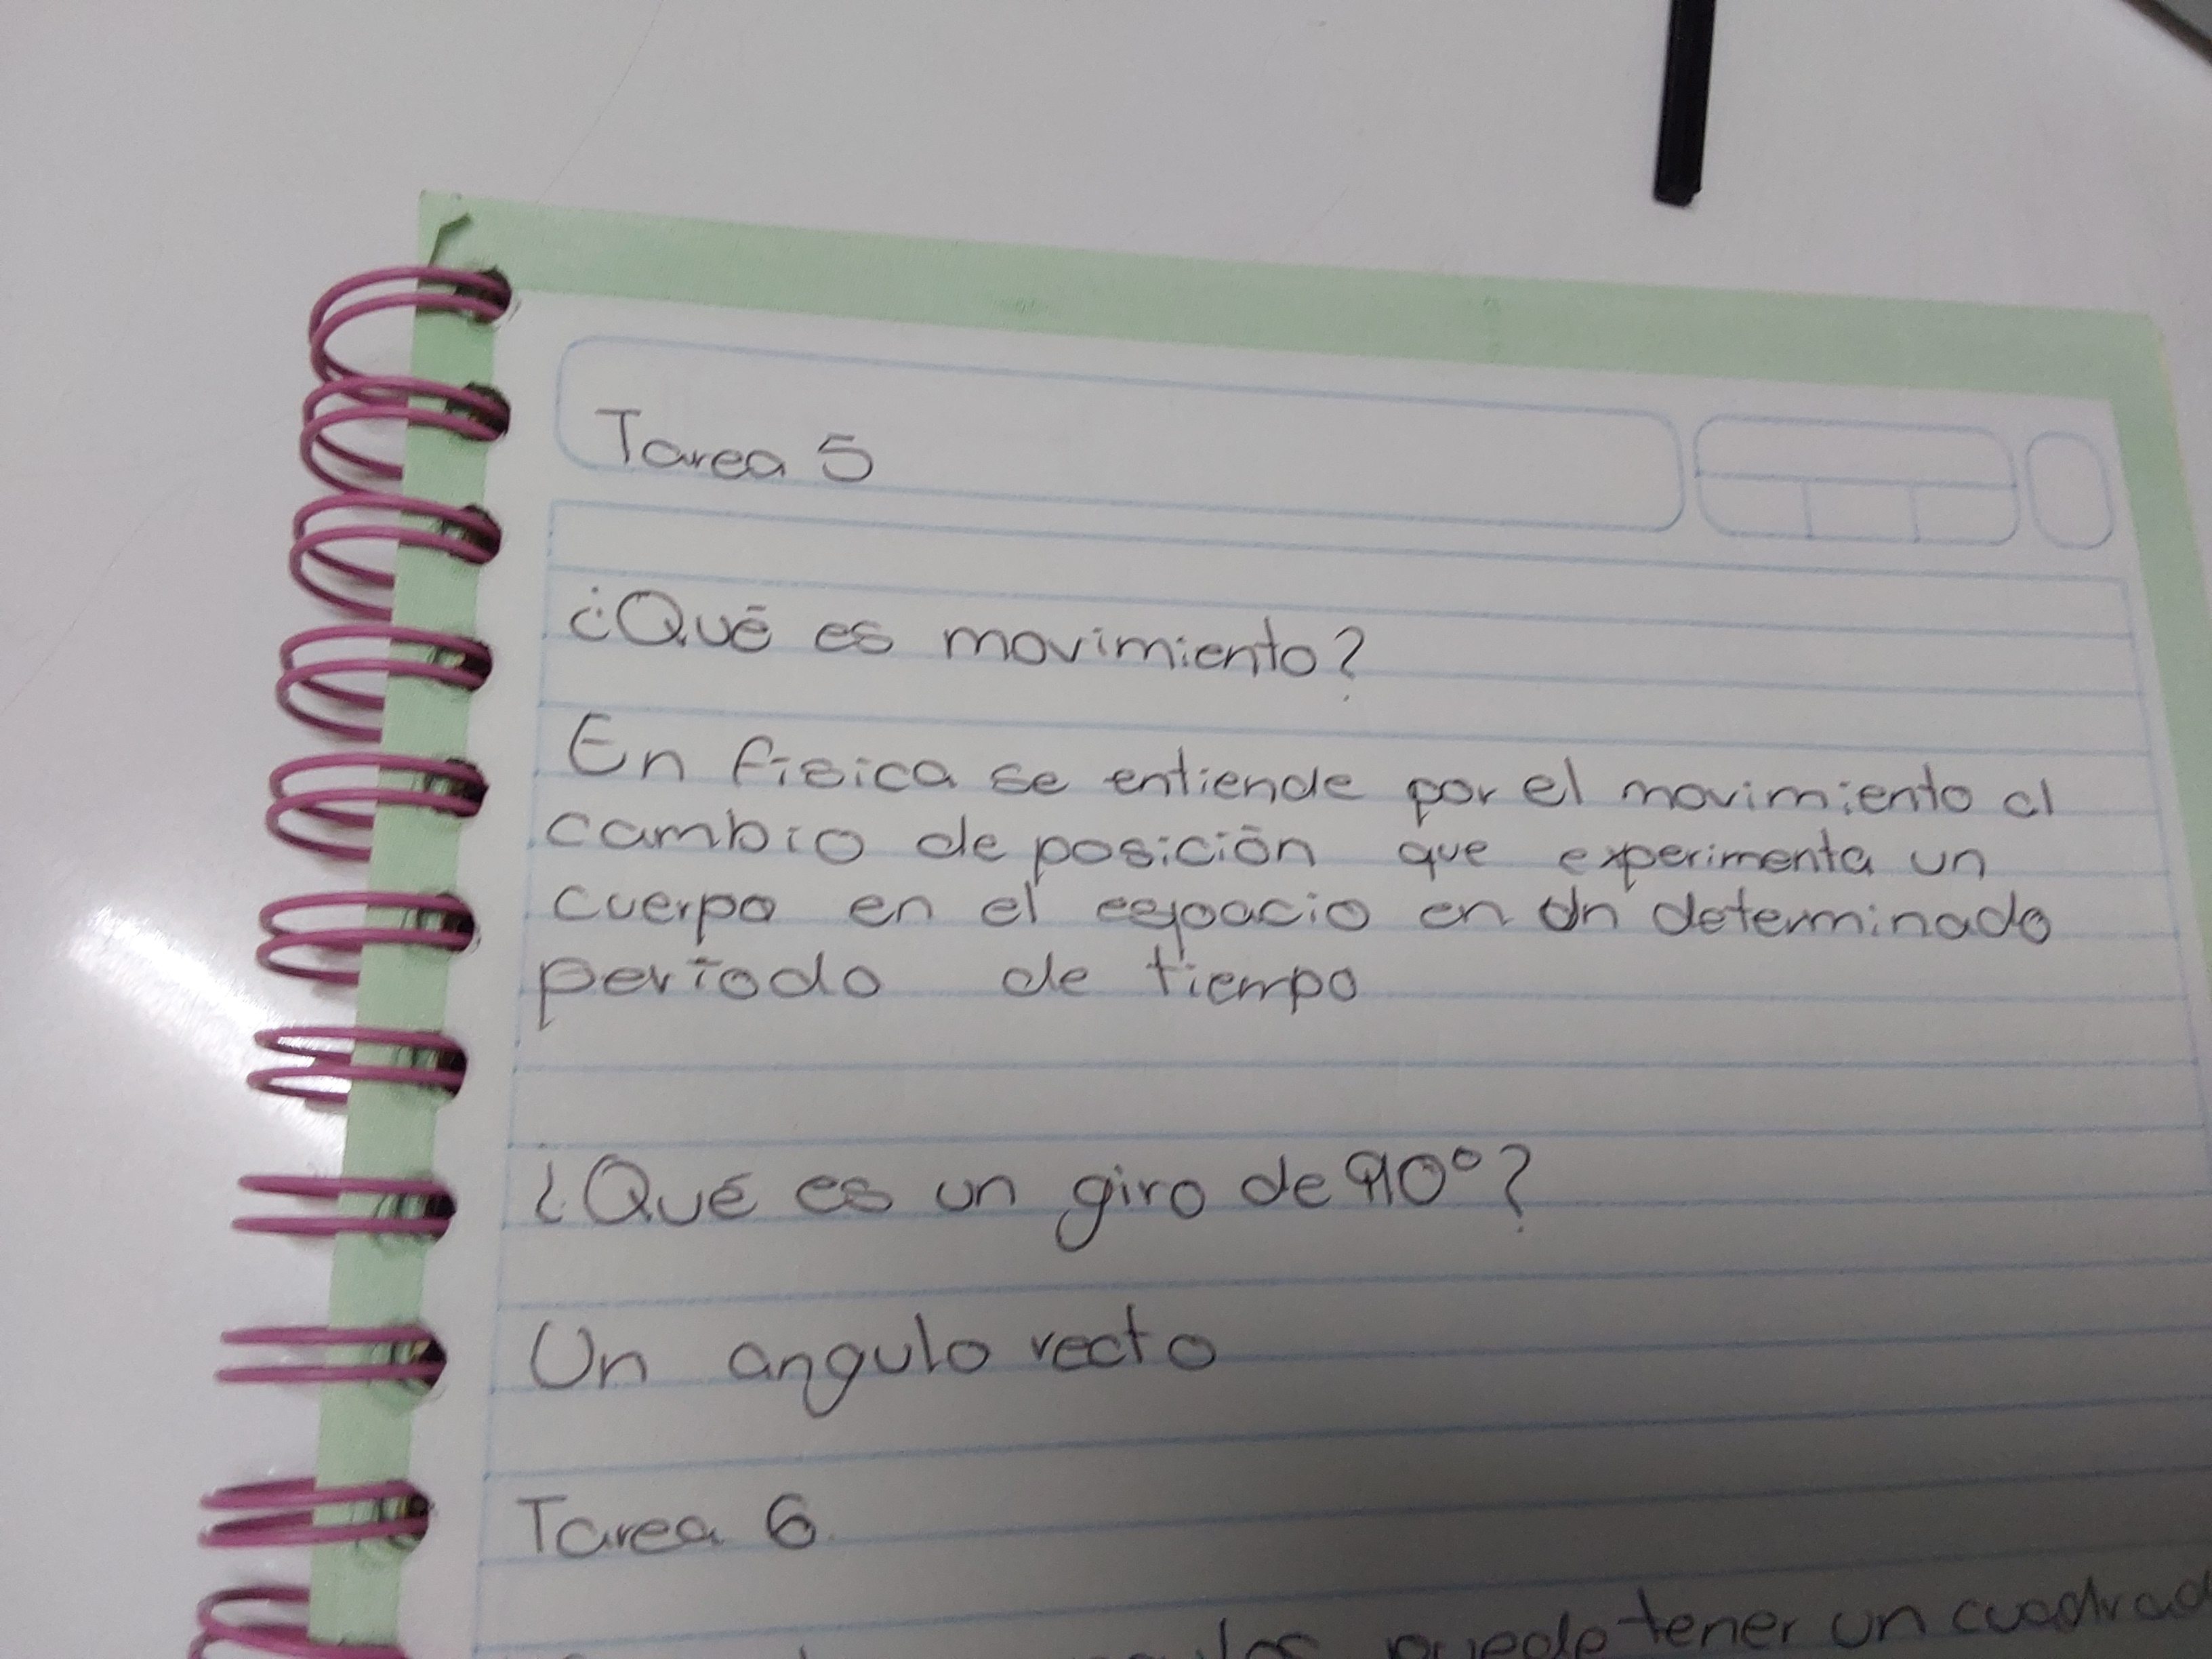 Tarea 5
¿Qué es movimiento?
En fisica se entiende por el movimiento al
cambio de posición que experimenta un
cuerpo en el espacio en un determinado
período de tiempo
¿Qué es un giro de 90°?
Un angulo recto
Tarea 6
puede tener un cuadrad